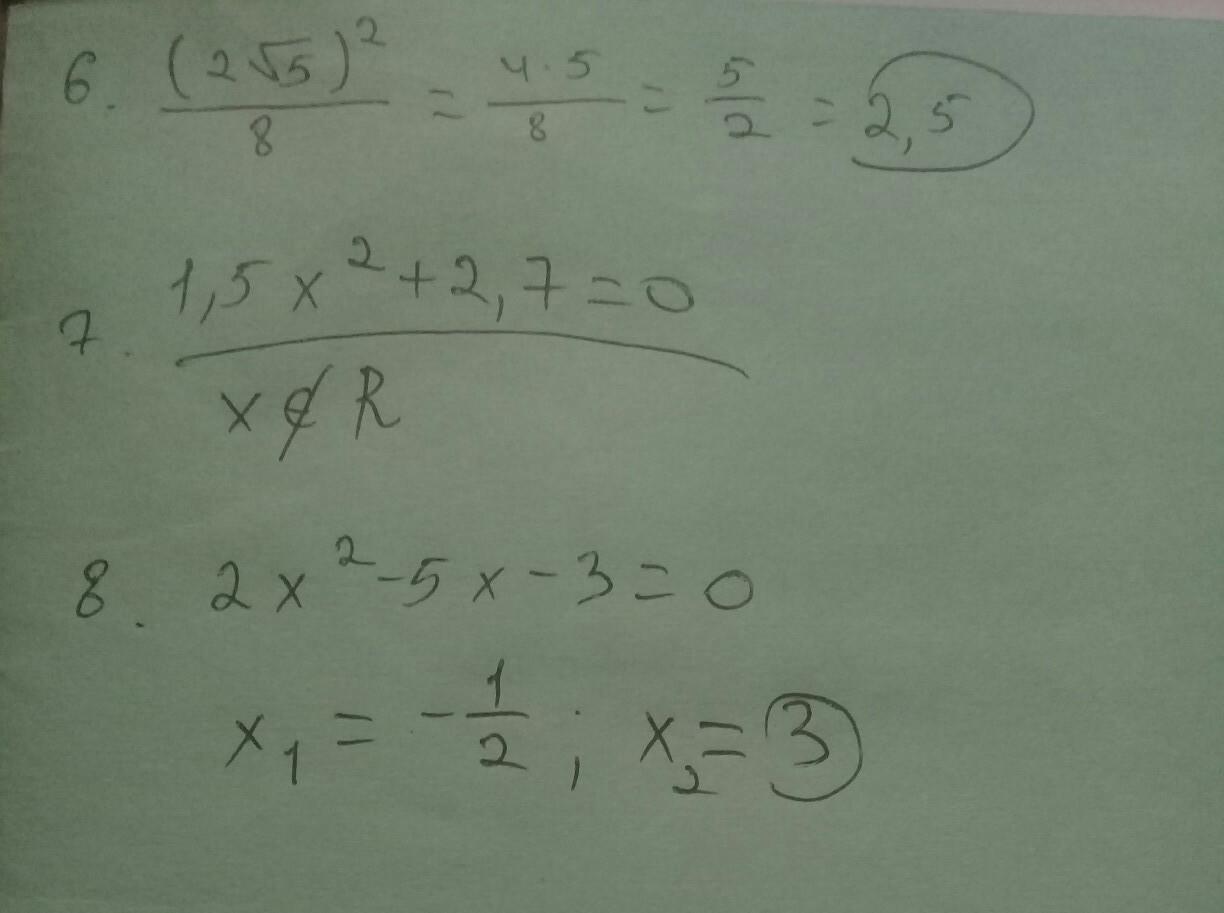 6. (2√5)² / 8 = 4·5 / 8 = 5/2 = 2,5
7. 1,5x² + 2,7 = 0
x ∉ R
8. 2x² - 5x - 3 = 0
x₁ = -1/2 ; x₂ = 3